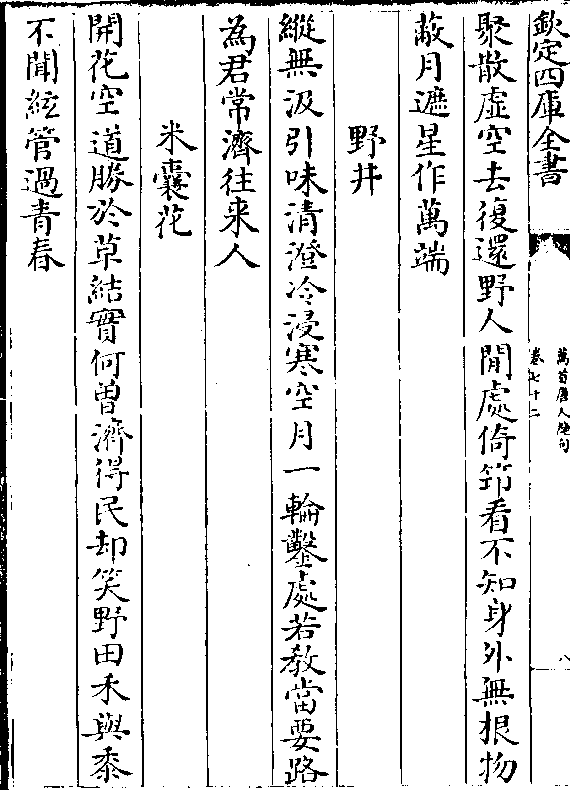 欽定四庫全書
萬首唐人絶句
卷七十二
八
聚散虚空去復還野人閒處倚筇看不知身外無根物
蔽月遮星作萬端
野井
縱無汲引味清澄冷浸寒空月一輪鑿處若教當要路
為君常濟往来人
米囊花
開花空道勝於草結實何曽濟得民却笑野田禾與黍
不聞絃管過青春